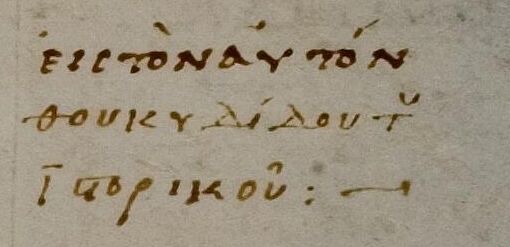 ἐις τὸν ἀυτόν
θουκυδίδου τοῦ
ἱστορικοῦ: —